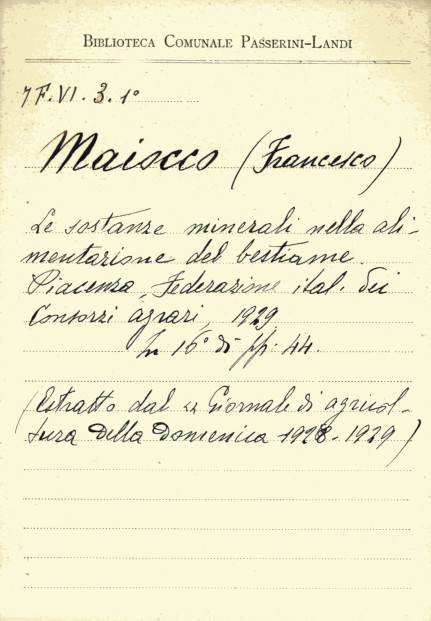 BIBLIOTECA COMUNALE PASSERINI-LANDI
7 F. VI. 3. 1°
Maiocco (Francesco)
Le sostanze minerali nella ali-
mentazione del bestiame.
Piacenza, Federazione ital. dei
Consorzi agrari, 1929
In 16° di pp. 44.
(Estratto dal "Giornale di agricol-
tura della Domenica 1928-1929)